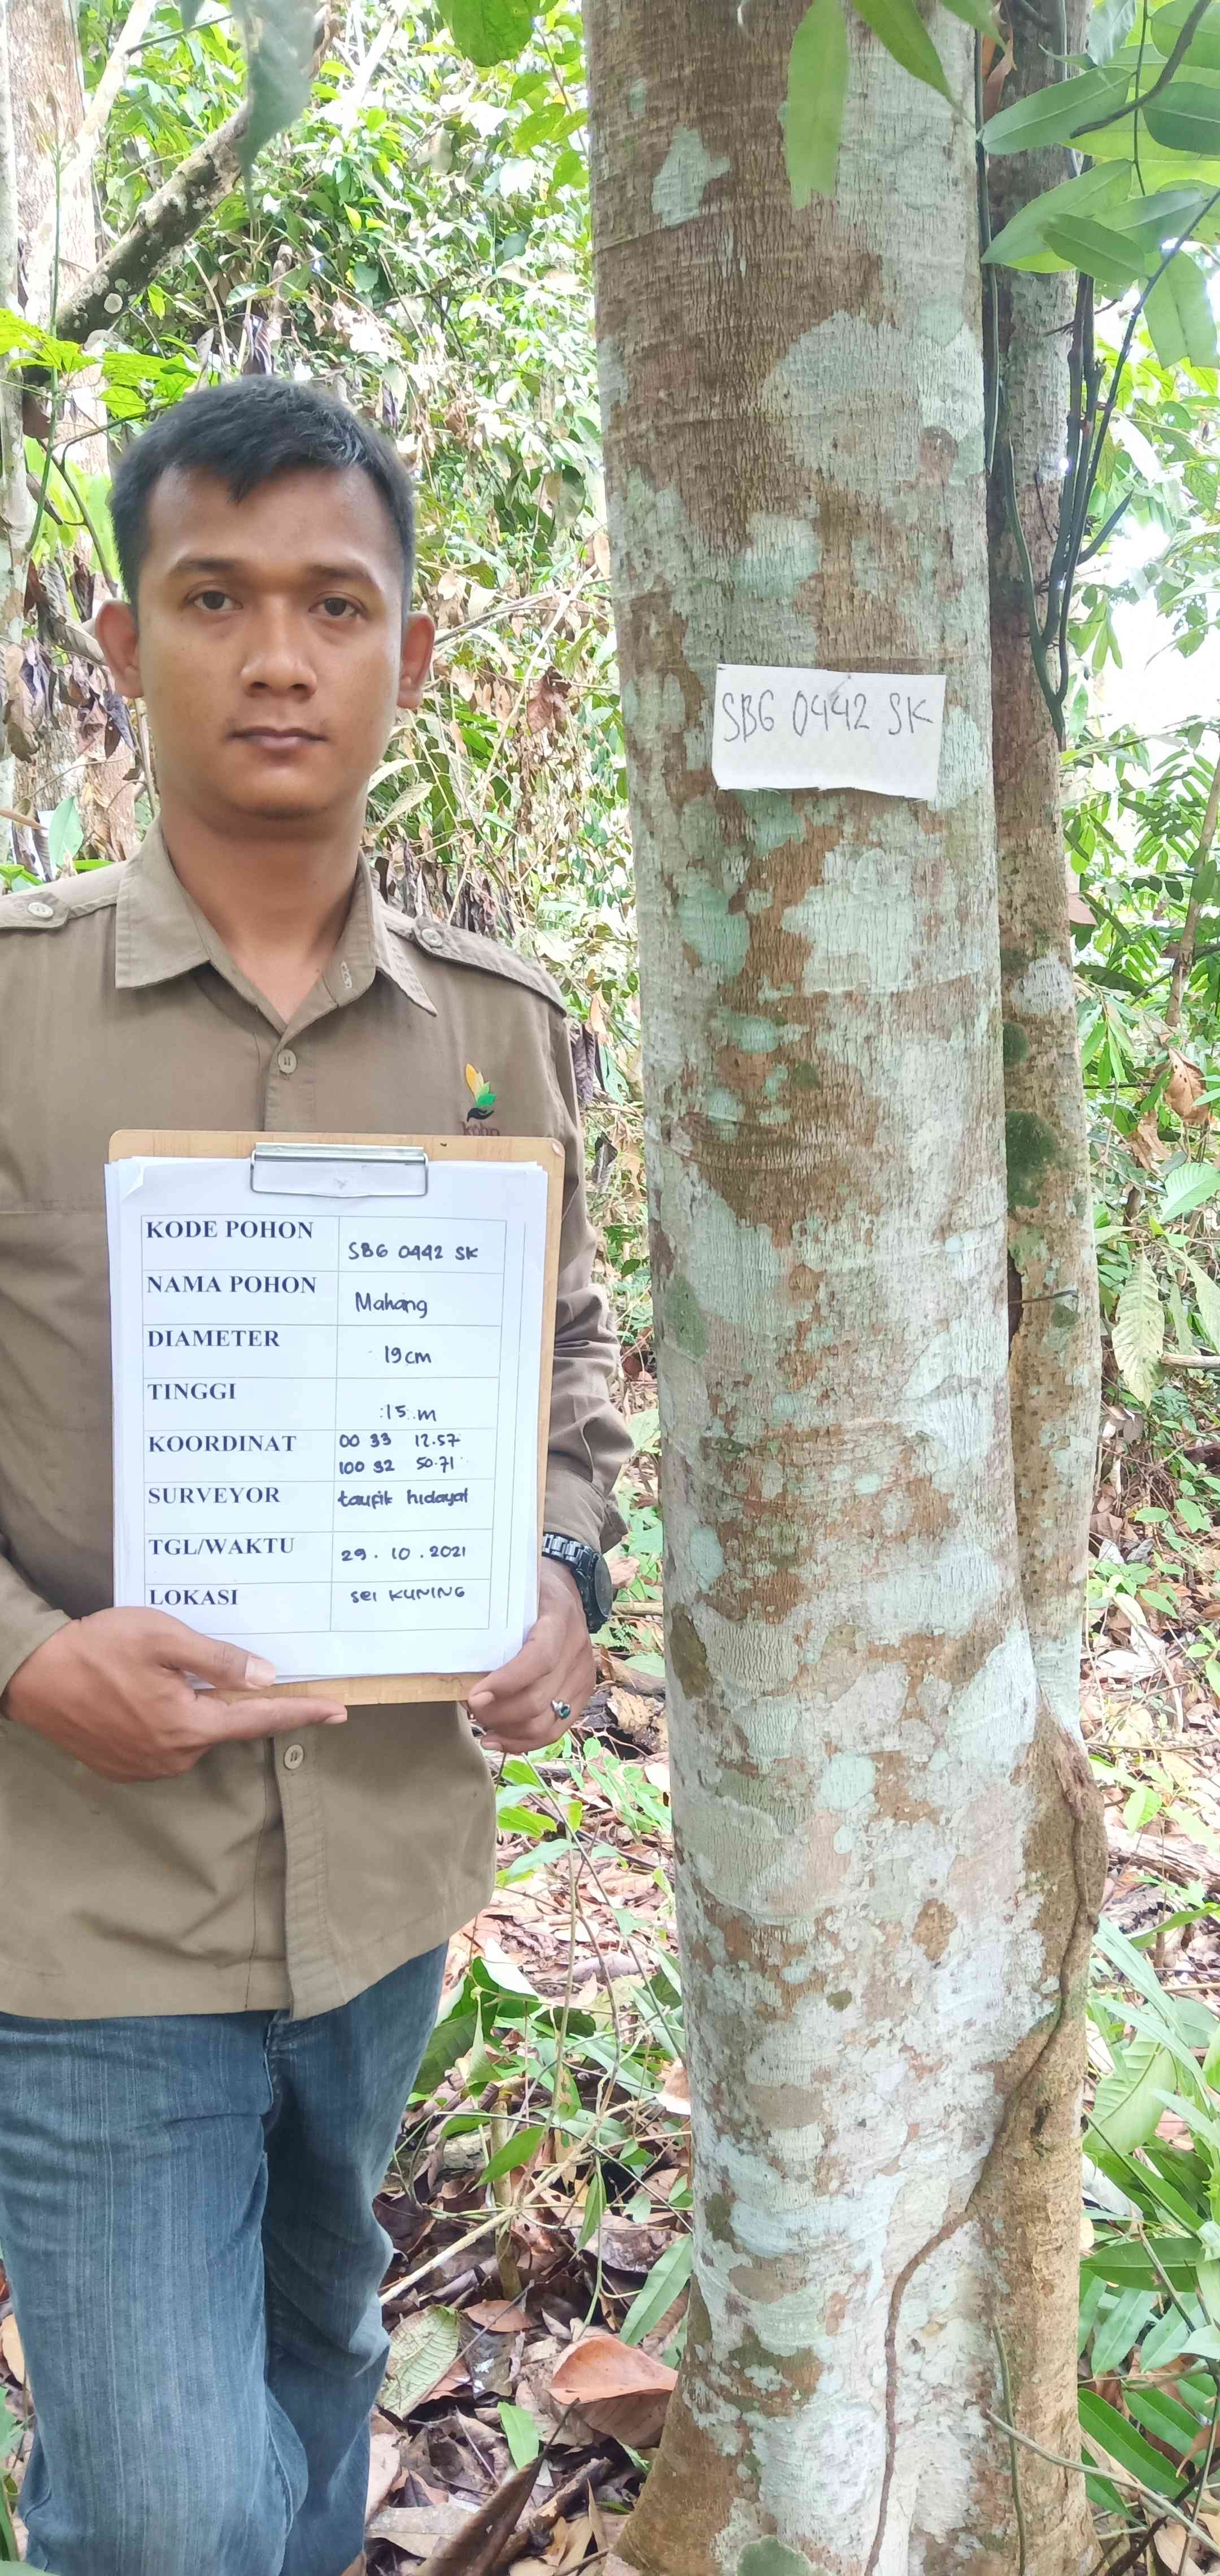 SBG 0442 SK
KODE POHON SBG 0442 SK
NAMA POHON Mahang
DIAMETER 19 cm
TINGGI 15 m
KOORDINAT 00 33 12.57
100 32 50.71
SURVEYOR taufik hidayat
TGL/WAKTU 29 . 10 . 2021
LOKASI sei KUNING